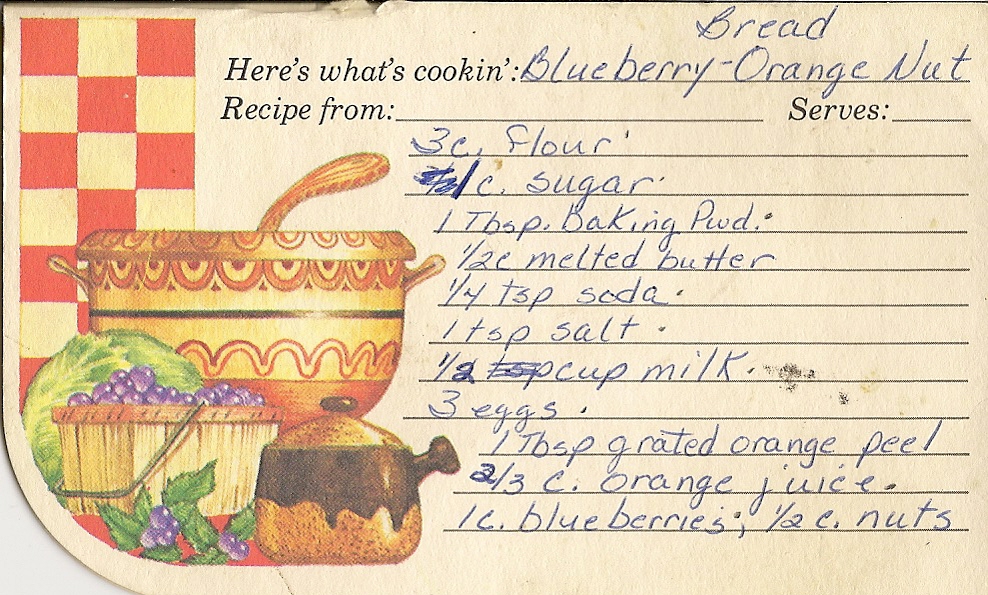 Bread
Here's what's cookin': Blueberry-Orange Nut
Recipe from: Serves:
3c. flour
1 c. sugar
1 Tbsp. baking Pwd.
1/2c melted butter
1/4 tsp soda.
1 tsp salt.
1/2 cup milk.
3 eggs.
1 Tbsp grated orange peel
2/3 c. orange juice.
1c. blueberries, 1/2 c. nuts